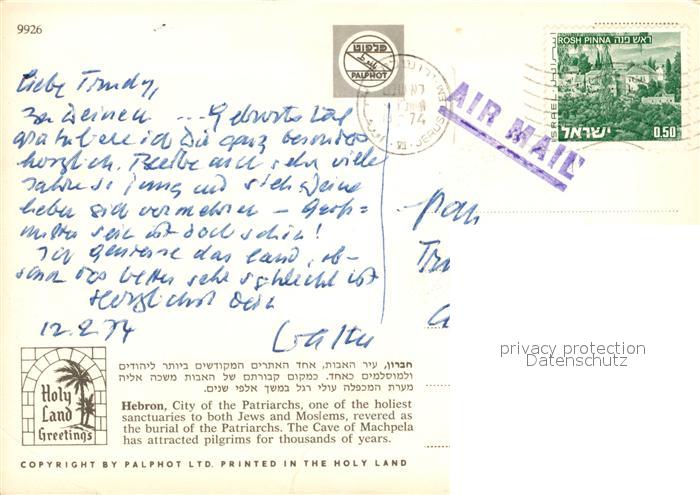 9926
פלפוט
PALPHOT
JERUS
74
AIR MAIL
ROSH PINNA ראש פנה
ISRAEL
ישראל 0.50
Liebe Trudy,
zu Deinem ... Geburtstag
gratuliere ich Dir ganz besonders
herzlich. Bleibe auch sehr viele
Jahre so jung und sieh Deine
lieben sich vermehren - Groß-
mutter sein ist doch schön!
Ich geniesse das Land, ob-
schon das Wetter sehr schlecht ist
Herzlichst Dein
12.2.74 Walter
Tru
privacy protection
Datenschutz
Holy
Land
Greetings
חברון, עיר האבות, אחד האתרים המקודשים ביותר ליהודים
ולמוסלמים כאחד. כמקום קבורתם של האבות משכה אליה
מערת המכפלה עולי רגל במשך אלפי שנים.
Hebron, City of the Patriarchs, one of the holiest
sanctuaries to both Jews and Moslems, revered as
the burial of the Patriarchs. The Cave of Machpela
has attracted pilgrims for thousands of years.
COPYRIGHT BY PALPHOT LTD. PRINTED IN THE HOLY LAND